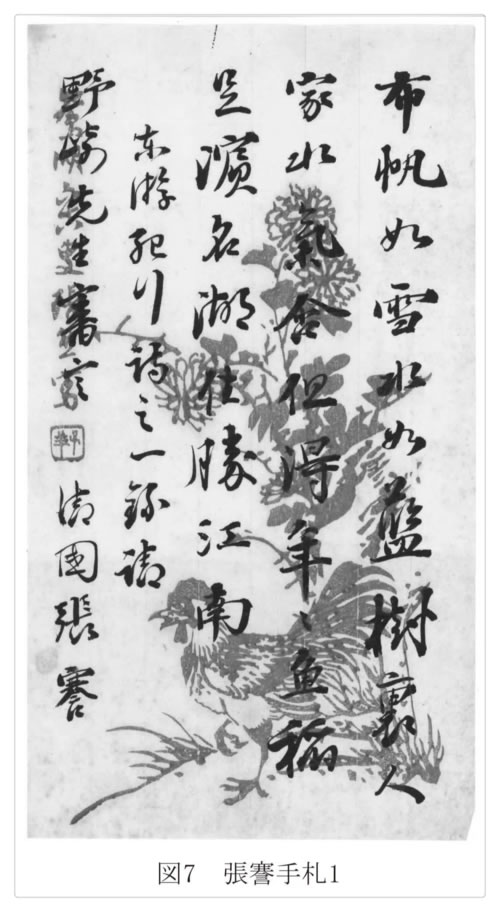 布帆如雪水如藍樹裏人
家水氣含但得年〻魚稻
足濱名湖住勝江南
東游紀行詩之一録請
野崎先生審定 清國張謇
図7　張謇手札1